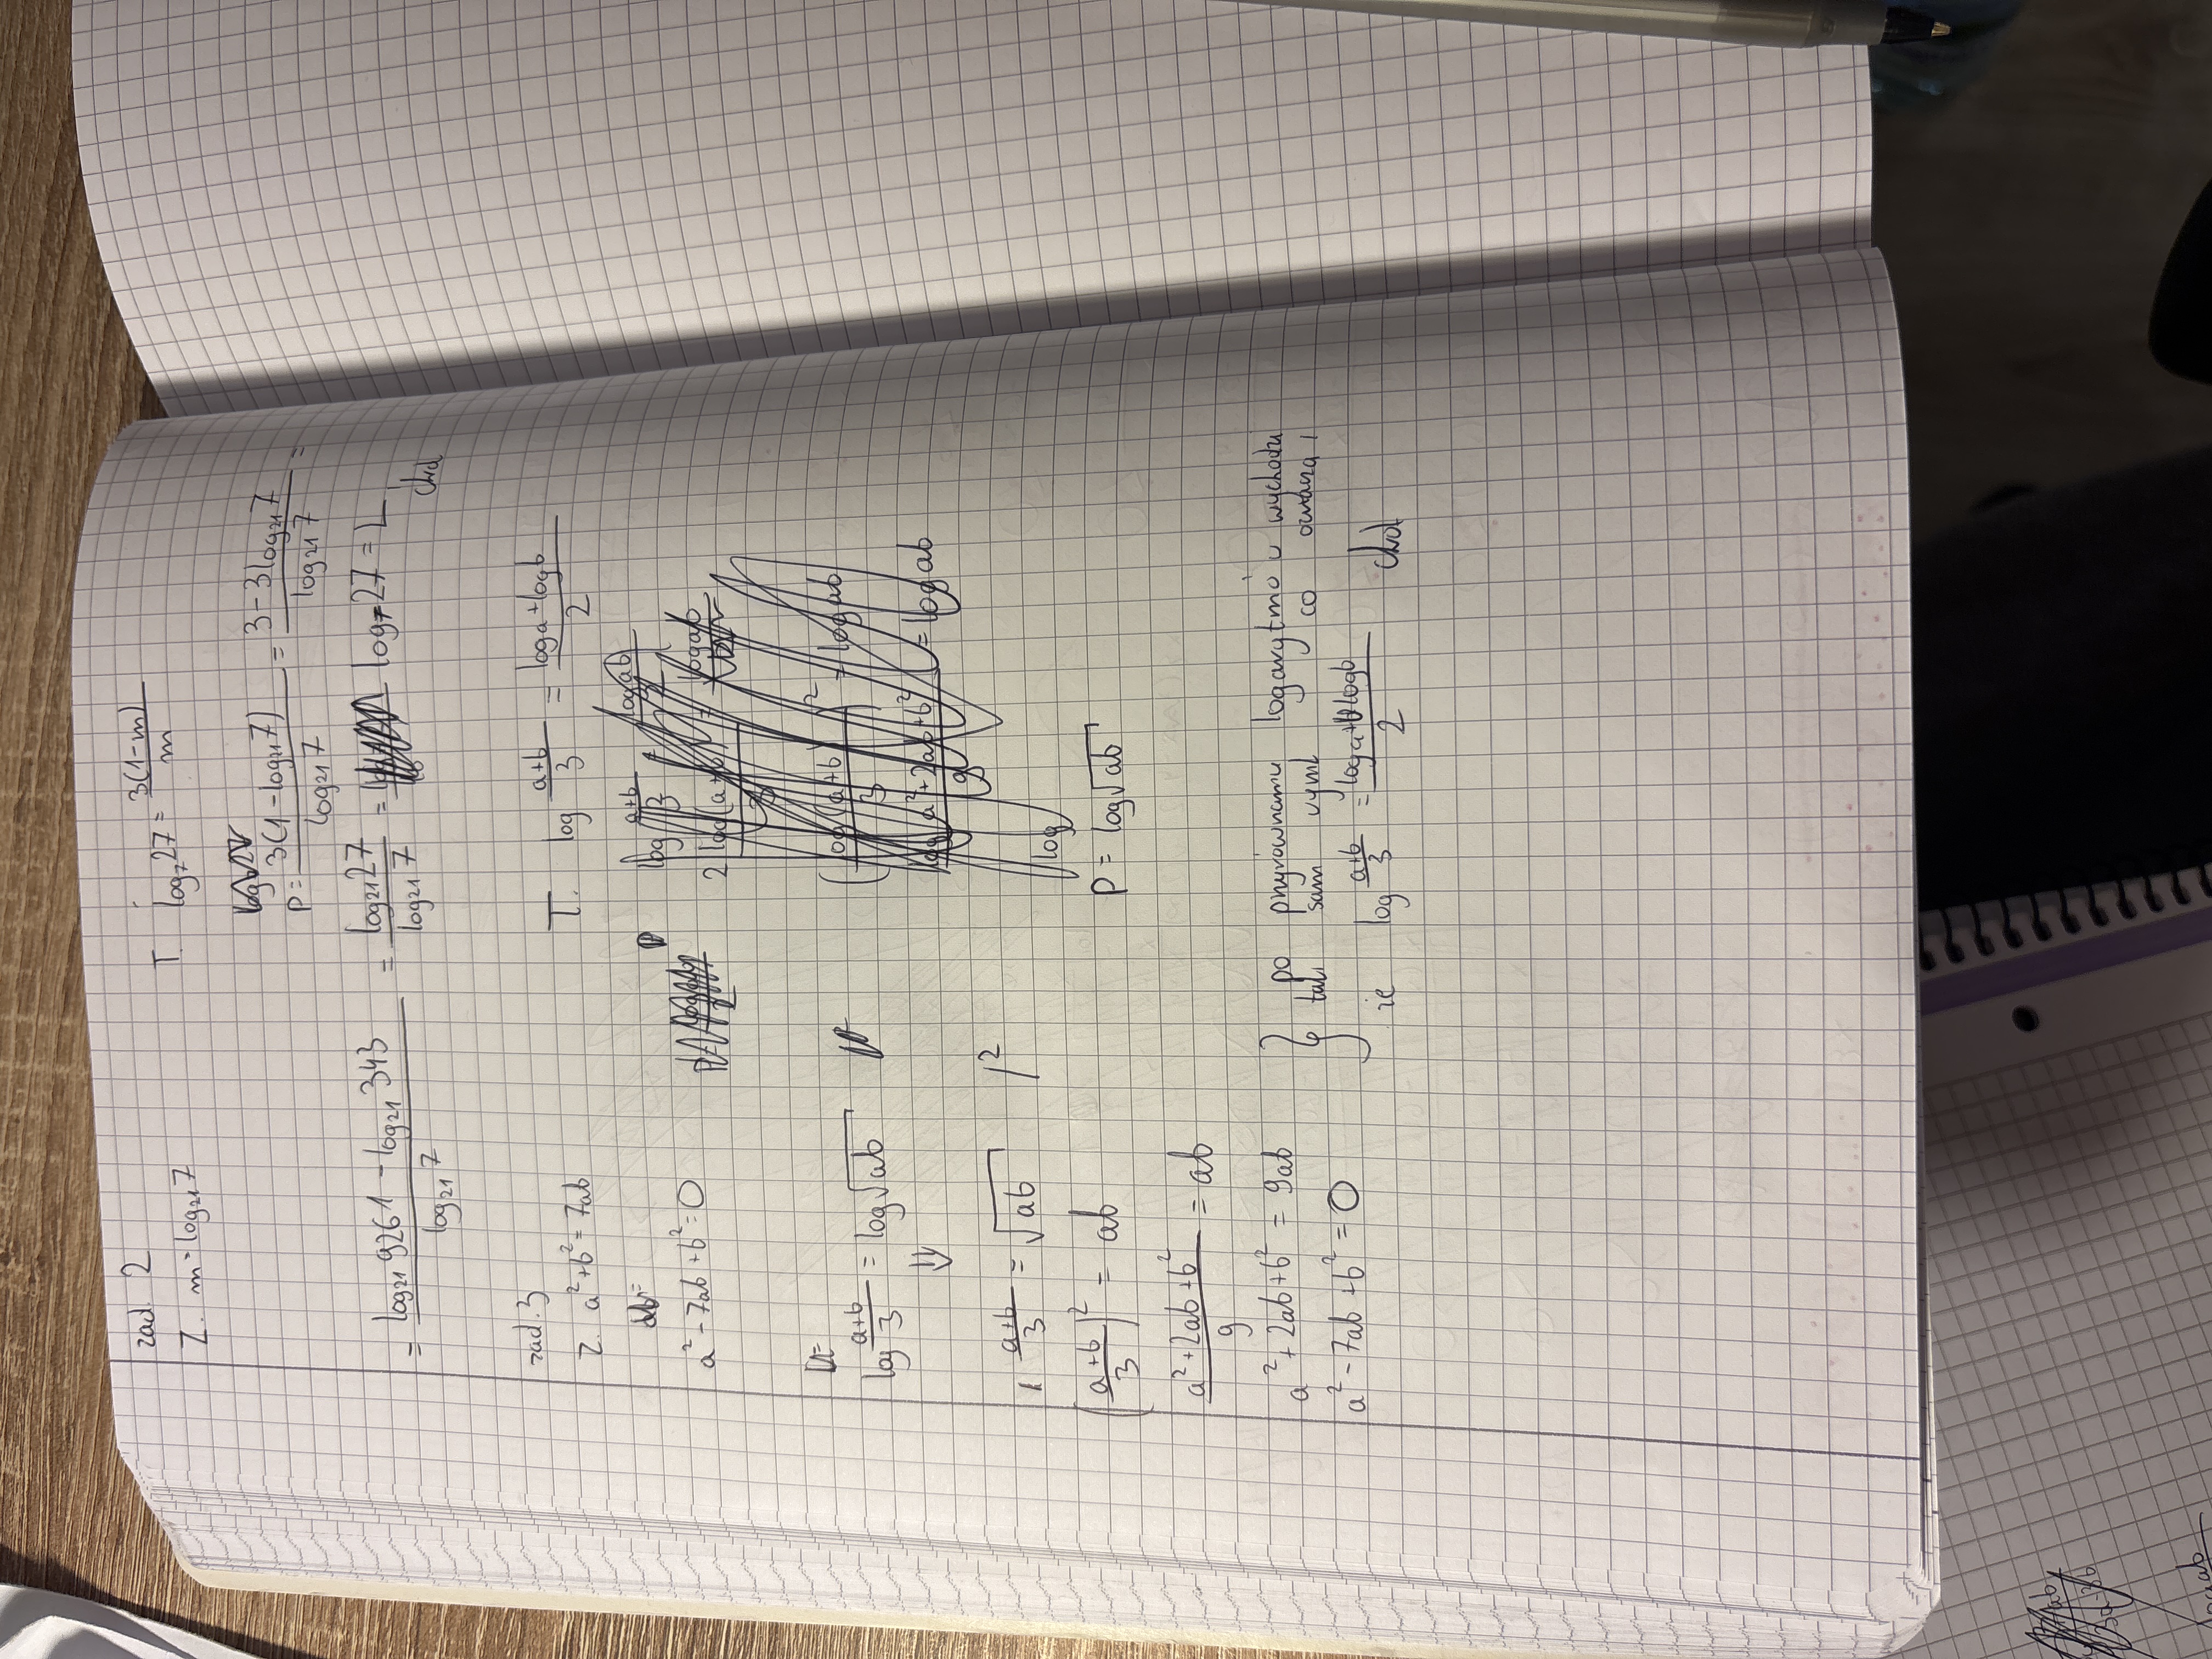 zad. 2
Z. m = log₂₁7 T. log₇27 = 3(1-m)/m
P = 3(1-log₂₁7)/log₂₁7 = 3-3log₂₁7/log₂₁7 =
= log₂₁9261 - log₂₁343/log₂₁7 = log₂₁27/log₂₁7 = log₇27 = L
cnd
zad. 3
Z. a²+b² = 7ab T. log a+b/3 = log a + log b/2
a² - 7ab + b² = 0
2 log(a+b)
log ab
(log(a+b/3)² = log ab
log a²+2ab+b²/9 = log ab
log
log a+b/3 = log√ab
⇓
a+b/3 = √ab /²
P = log√ab
(a+b/3)² = ab
a²+2ab+b²/9 = ab
a²+2ab+b² = 9ab
a² - 7ab + b² = 0
po przyrównaniu logarytmów wychodzi
taki sam wynik co oznacza,
że log a+b/3 = log a + log b/2
cnd